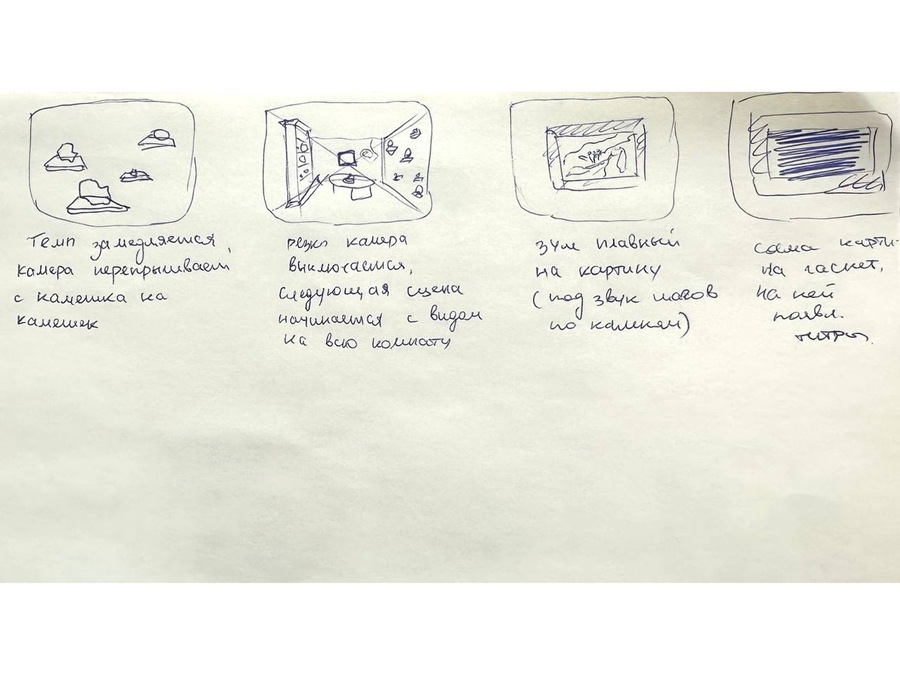 Темп замедляется,
камера перепрыгивает
с камешка на
камешек
резко камера
выключается,
следующая сцена
начинается с видом
на всю комнату
зум плавный
на картину
(под звук шагов
по камням)
сама карти-
на гаснет,
на ней
появл.
титры.